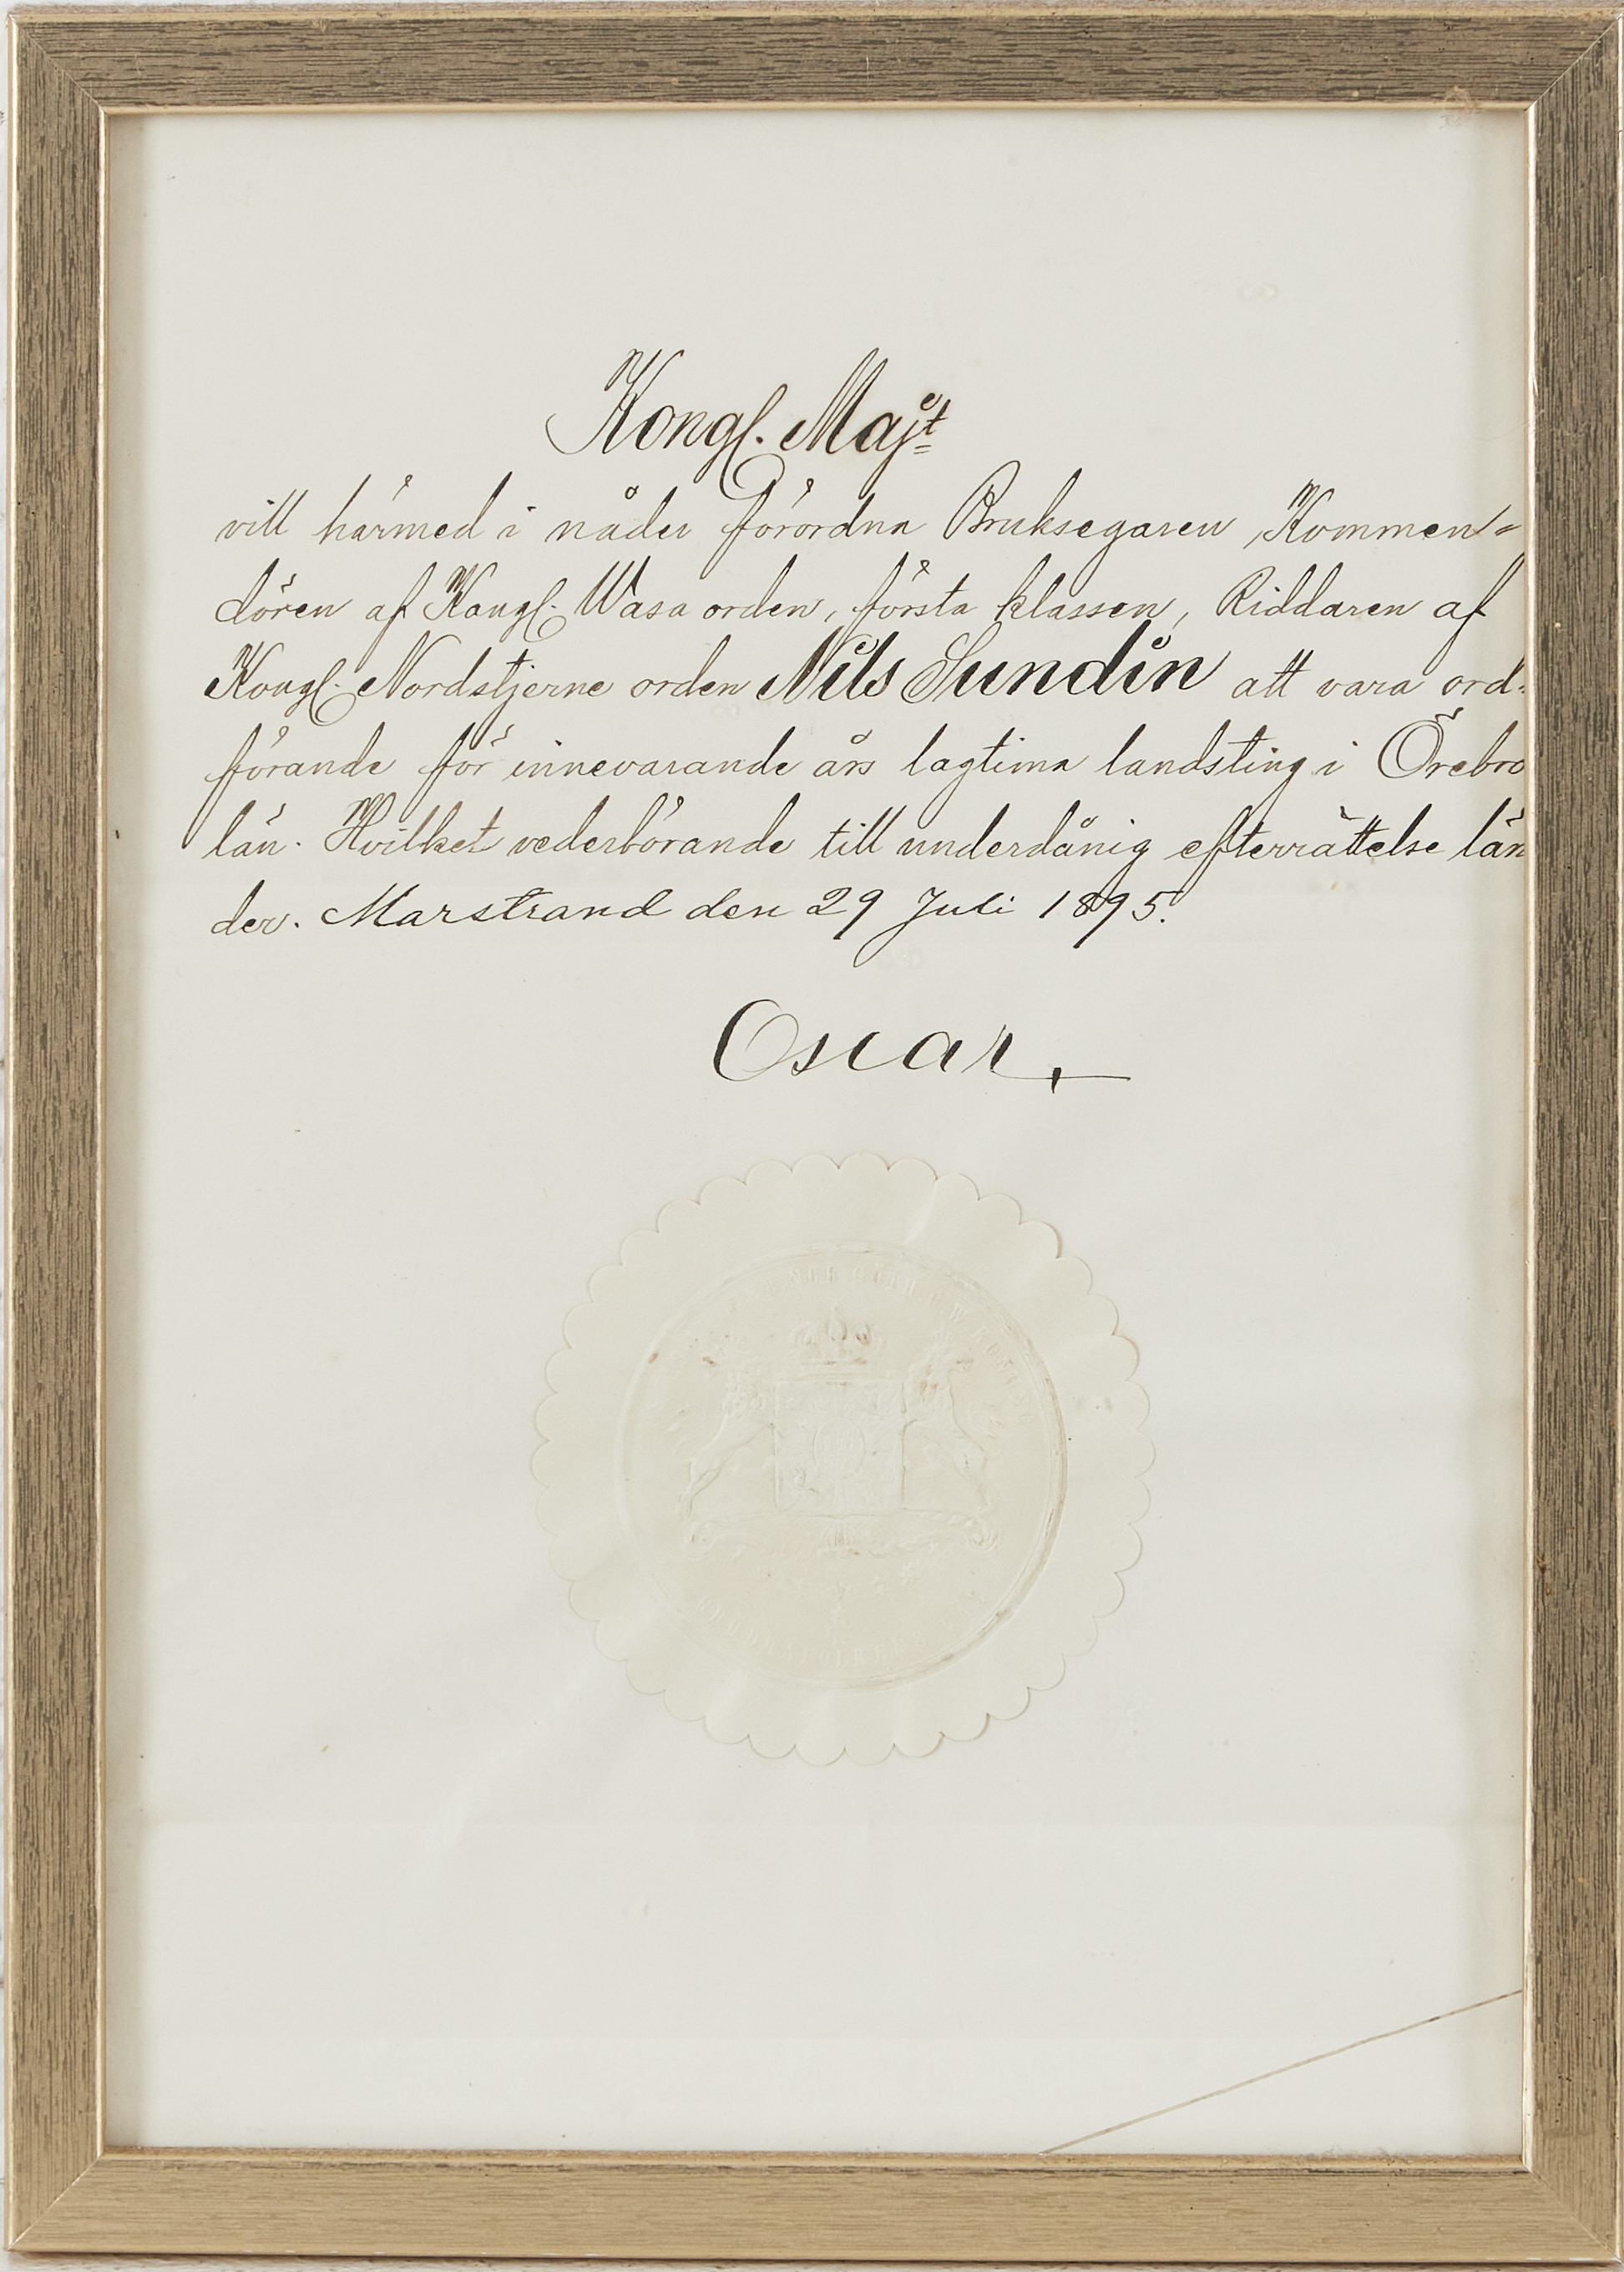 Kongl. Majt
vill härmed i nåder förordna Bruksegaren, Kommen=
dören af Kongl. Wasa orden, första klassen, Riddaren af
Kongl. Nordstjerne orden Nils Sundin att vara ord=
förande för innevarande års lagtima landsting i Örebro
län. Hvilket vederbörande till underdånig efterrättelse län
der. Marstrand den 29 Juli 1895.
Oscar